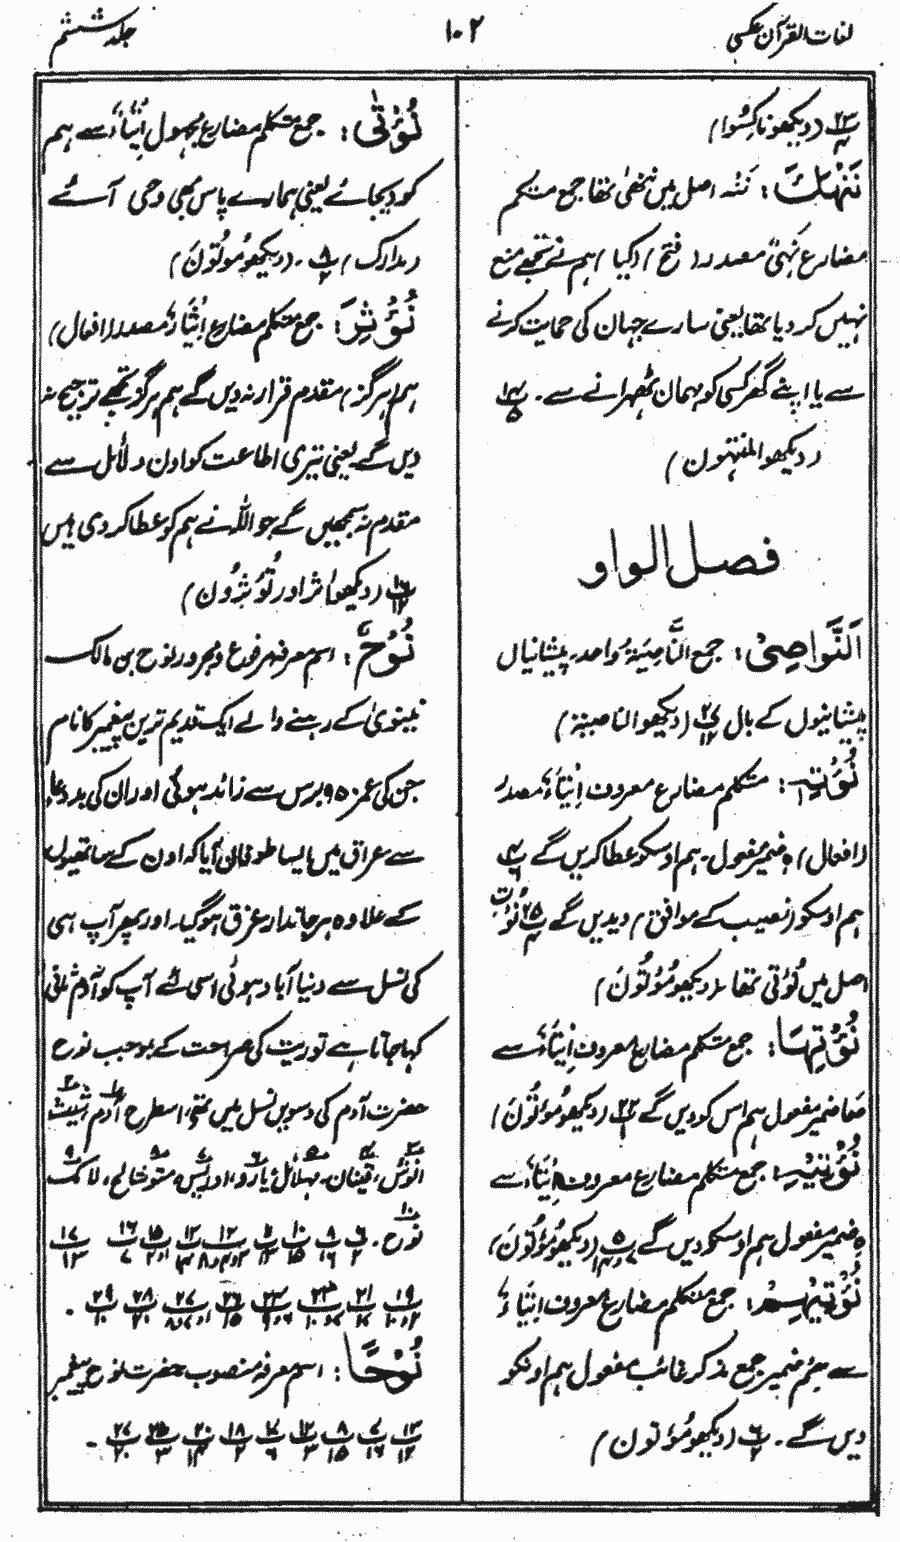 لغات القرآن عکسی
۱۰۲
جلد ششم
(دیکھو ناکسوا)
نَنْهَكَ: نَنْهَ اصل میں ننہیٰ تھا جمع متکلم
مضارع نَہْیٌ مصدر (فتح) (کیا) ہم نے تجھے منع
نہیں کر دیا تھا یعنی سارے جہان کی حمایت کرنے
سے یا اپنے گھر کسی کو مہمان ٹھہرانے سے۔ ۱۴/۵
(دیکھو المنتہون)
فصل الواو
اَلنَّوَاصِیْ: جمع النَّاصِیَۃُ واحد، پیشانیاں
پیشانیوں کے بال ۲۷/۱۲ (دیکھو الناصیۃ)
نُؤْتِ: متکلم مضارع معروف اِیْتَاءٌ مصدر
(افعال) ہٖ ضمیر مفعول۔ ہم اوسکو عطا کریں گے
ہم اوسکو (نصیب کے موافق) دیدیں گے ۲۵/۴ نُؤْتِ
اصل میں نُؤْتِیْ تھا۔ (دیکھو مُؤْتُوْنَ)
نُؤْتِهَا: جمع متکلم مضارع معروف اِیْتَاءٌ سے
ھَا ضمیر مفعول ہم اس کو دیں گے ۲۲/۱ (دیکھو مُؤْتُوْنَ)
نُؤْتِیْهِ: جمع متکلم مضارع معروف اِیْتَاءٌ سے
ہٖ ضمیر مفعول ہم اوسکو دیں گے (دیکھو مُؤْتُوْنَ)
نُؤْتِیْهِمْ: جمع متکلم مضارع معروف اِیْتَاءٌ
سے ھِمْ ضمیر جمع مذکر غائب مفعول ہم اونکو
دیں گے۔ ۶/۲ (دیکھو مُؤْتُوْنَ)
نُؤْتٰی: جمع متکلم مضارع مجہول اِیْتَاءٌ سے ہم
کو دیجائے یعنی ہمارے پاس بھی وحی آئے
(مدارک) ۸/۲۔ (دیکھو مُؤْتُوْنَ)
نُؤْثِرَ: جمع متکلم مضارع اِیْثَارٌ مصدر (افعال)
ہم (ہرگز) متقدم قرار نہ دیں گے ہم ہرگز تجھے ترجیح نہ
دیں گے یعنی تیری اطاعت کو اون دلائل سے
متقدم نہ سمجھیں گے جو اللہ نے ہم کو عطا کر دی ہیں
۱۶/۱۲ (دیکھو اٰثر اور تُؤْثِرُوْنَ)
نُوْحٌ: اسم معرفہ مرفوع و مجرور نوح بن مالک
نینویٰ کے رہنے والے ایک قدیم ترین پیغمبر کا نام
جن کی عمر ۹۵۰ برس سے زائد ہوئی اور ان کی بددعاء
سے عراق میں ایسا طوفان آیا کہ اون کے ساتھیوں
کے علاوہ ہر جاندار غرق ہوگیا، اور پھر آپ ہی
کی نسل سے دنیا آباد ہوئی اسی لئے آپ کو آدم ثانی
کہا جاتا ہے توریت کی صراحت کے بموجب نوح
حضرت آدم کی دسویں نسل میں تھے، اسطرح آدم، شیث
انوش، قینان، مہلائل، یارد، ادریس، متوشالح، لامک
نوح۔ ۶/۲ ۸/۱۶ ۱۰/۱۵ ۱۷/۱۳
نُوْحًا: اسم معرفہ منصوب حضرت نوح پیغمبر
۱۲/۱۲ ۷/۱۶ ۸/۱۵ ۱۲/۳ ۱۷/۶ ۱۸/۲ ۲۰/۱۴ ۲۵/۳ ۲۷/۲۰۔